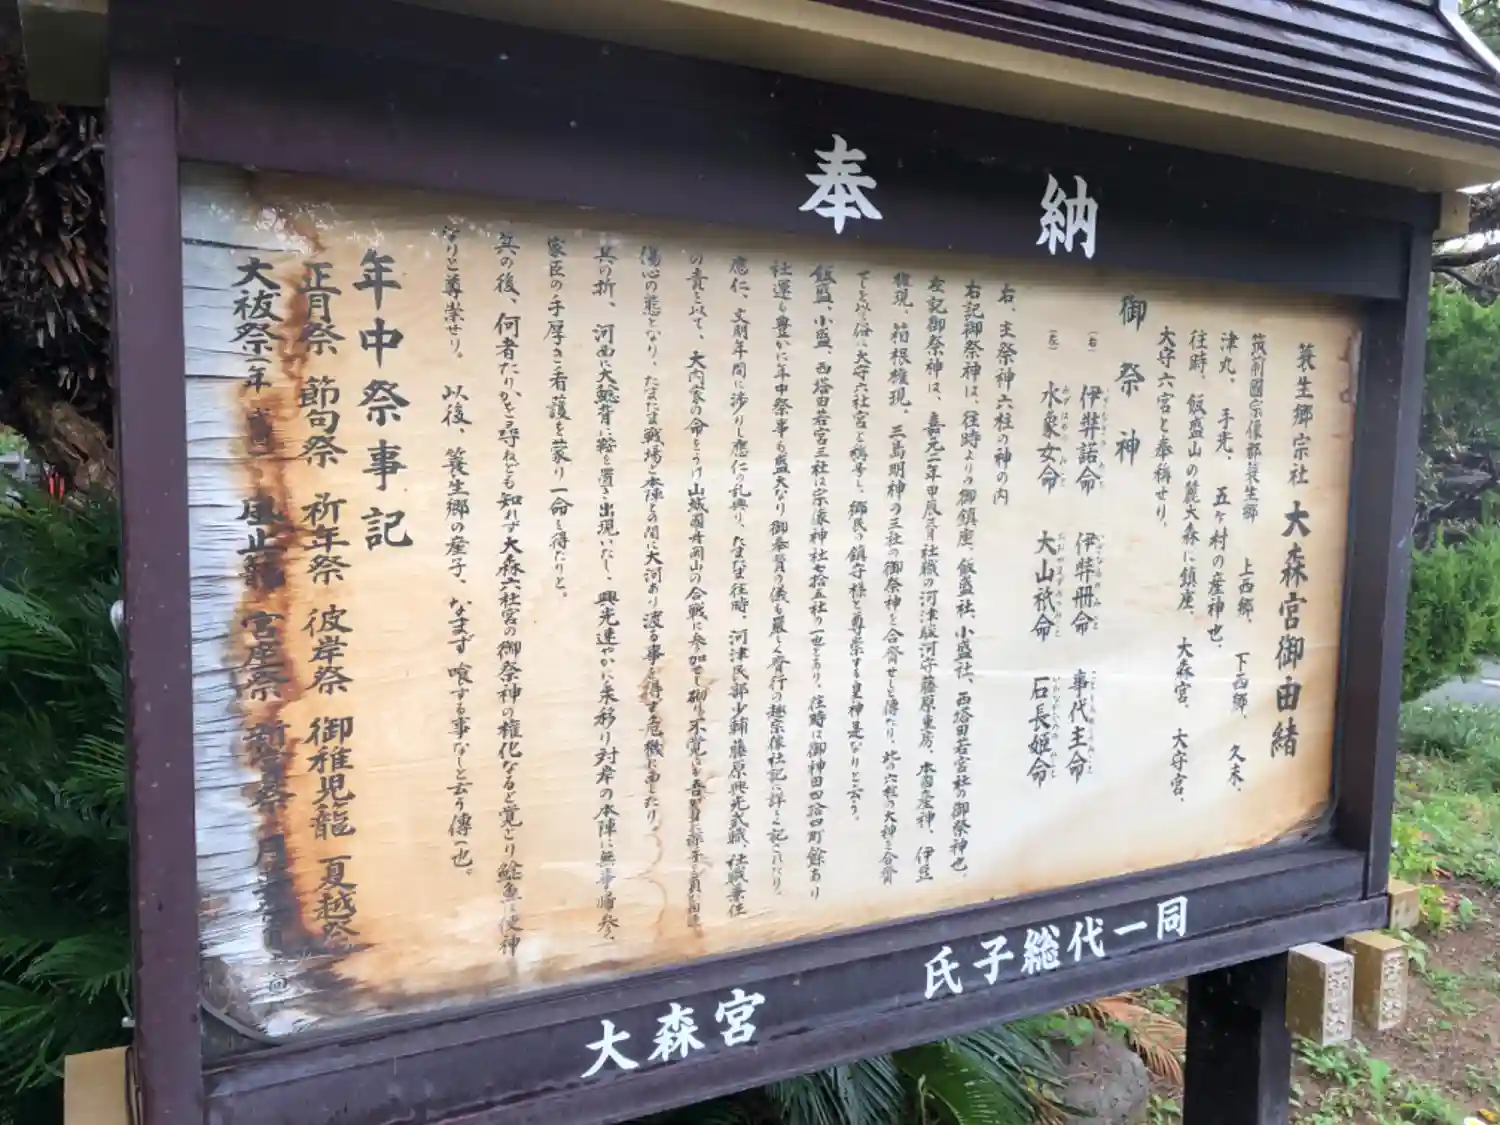 奉納
蓑生郷宗社 大森宮御由緒
筑前國宗像郡蓑生郷 上西郷、下西郷、久末、
津丸、手光、五ヶ村の産神也、
往時、飯盛山の麓大森に鎮座、大森宮、大守宮、
大守六宮と奉稱せり。
御祭神
(右) 伊弉諾命 伊弉冊命 事代主命
(左) 水象女命 大山祇命 石長姫命
右、主祭神六柱の神の内
右記御祭神は、往時よりの御鎮座、飯盛社、小盛社、西塔田若宮社の御祭神也。
左記御祭神は、嘉元二年甲辰 社職の河津駿河守藤原重房、本國産神、伊豆
権現、箱根権現、三島明神の三社の御祭神を合齊せしと傳たり、此の六柱の大神を合齊
てを以て俗に大守六社宮と稱号し、郷民の鎮守様と尊崇する皇神是なりと云う。
飯盛、小盛、西塔田若宮三社は宗像神社七拾五社の一也とあり、往時は御神田四拾四町餘あり
社運も豊かに年中祭事も盛大なり御奉賛の儀も嚴しく齊行の趣宗像社記に詳しく記されたり。
應仁、文明年間に渉りし應仁の乱興り、たまたま往時、河津民部少輔藤原興光武職、社職兼任
の責を以て、大内家の命をうけ山城國舟岡山の合戦に参加
傷心の態となり、たまたま戦場と本陣との間に大河あり渡る事を得ず危機に面したり。
其の折、河面に大鯰背に鞍を置き出現いたし、興光速やかに来移り対岸の本陣に無事帰参、
家臣の手厚き看護を蒙り一命を得たりと。
其の後、何者たりかを尋ねども知れず大森六社宮の御祭神の権化なると覚どり鯰魚は使神
なりと尊崇せり。 以後、蓑生郷の産子、なまず喰する事なしと云う傳へ也。
年中祭事記
正月祭 節句祭 祈年祭 彼岸祭 御稚児籠 夏越祭
大祓祭 風止籠 宮座祭 新嘗祭
大森宮 氏子総代一同